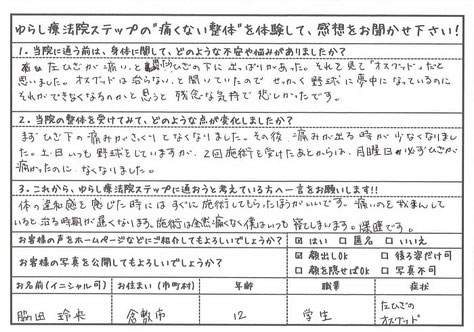 ゆらし療法院ステップの"痛くない整体"を体験して、感想をお聞かせ下さい!
1. 当院に通う前は、身体に関して、どのような不安や悩みがありましたか?
左ひざが痛い、と ひざの下に出っぱりがあった。それを見て"オスグッド"だと
思いました。オスグッドは治らない、と聞いていたので せっかく野球に夢中になっているのに
それができなくなるのかと思うと 残念な気持で 悲しかったです。
2. 当院の整体を受けてみて、どのような点が変化しましたか?
まず ひざ下の痛みがさっくり となくなりました。その後、痛みが出る時が 少なくなりまし
た。土日いつも 野球をしていますが、2回施術を受けたあとからは、月曜日が必ずひざが
痛かったのに、なくなりました。
3. これから、ゆらし療法院ステップに通おうと考えている方へ一言をお願いします!!
体の違和感を感じた時には すぐに施術してもらったほうがいいです。痛いのを我まんして
いると治る時期が遅くなります。施術は全然痛くなく僕はいつも寝てしまいます。爆睡です。
お客様の声をホームページなどにご紹介してもよろしいでしょうか? ☑ はい □ 匿名 □ いいえ
お客様の写真を公開してもよろしいでしょうか? ☑ 顔出しOK □ 後ろ姿だけ可
□ 顔を隠せばOK □ 写真不可
お名前(イニシャル可) お住まい(市町村) 年齢 職業 症状
脇田 玲央 倉敷市 12 学生 左ひざの
オスグッド